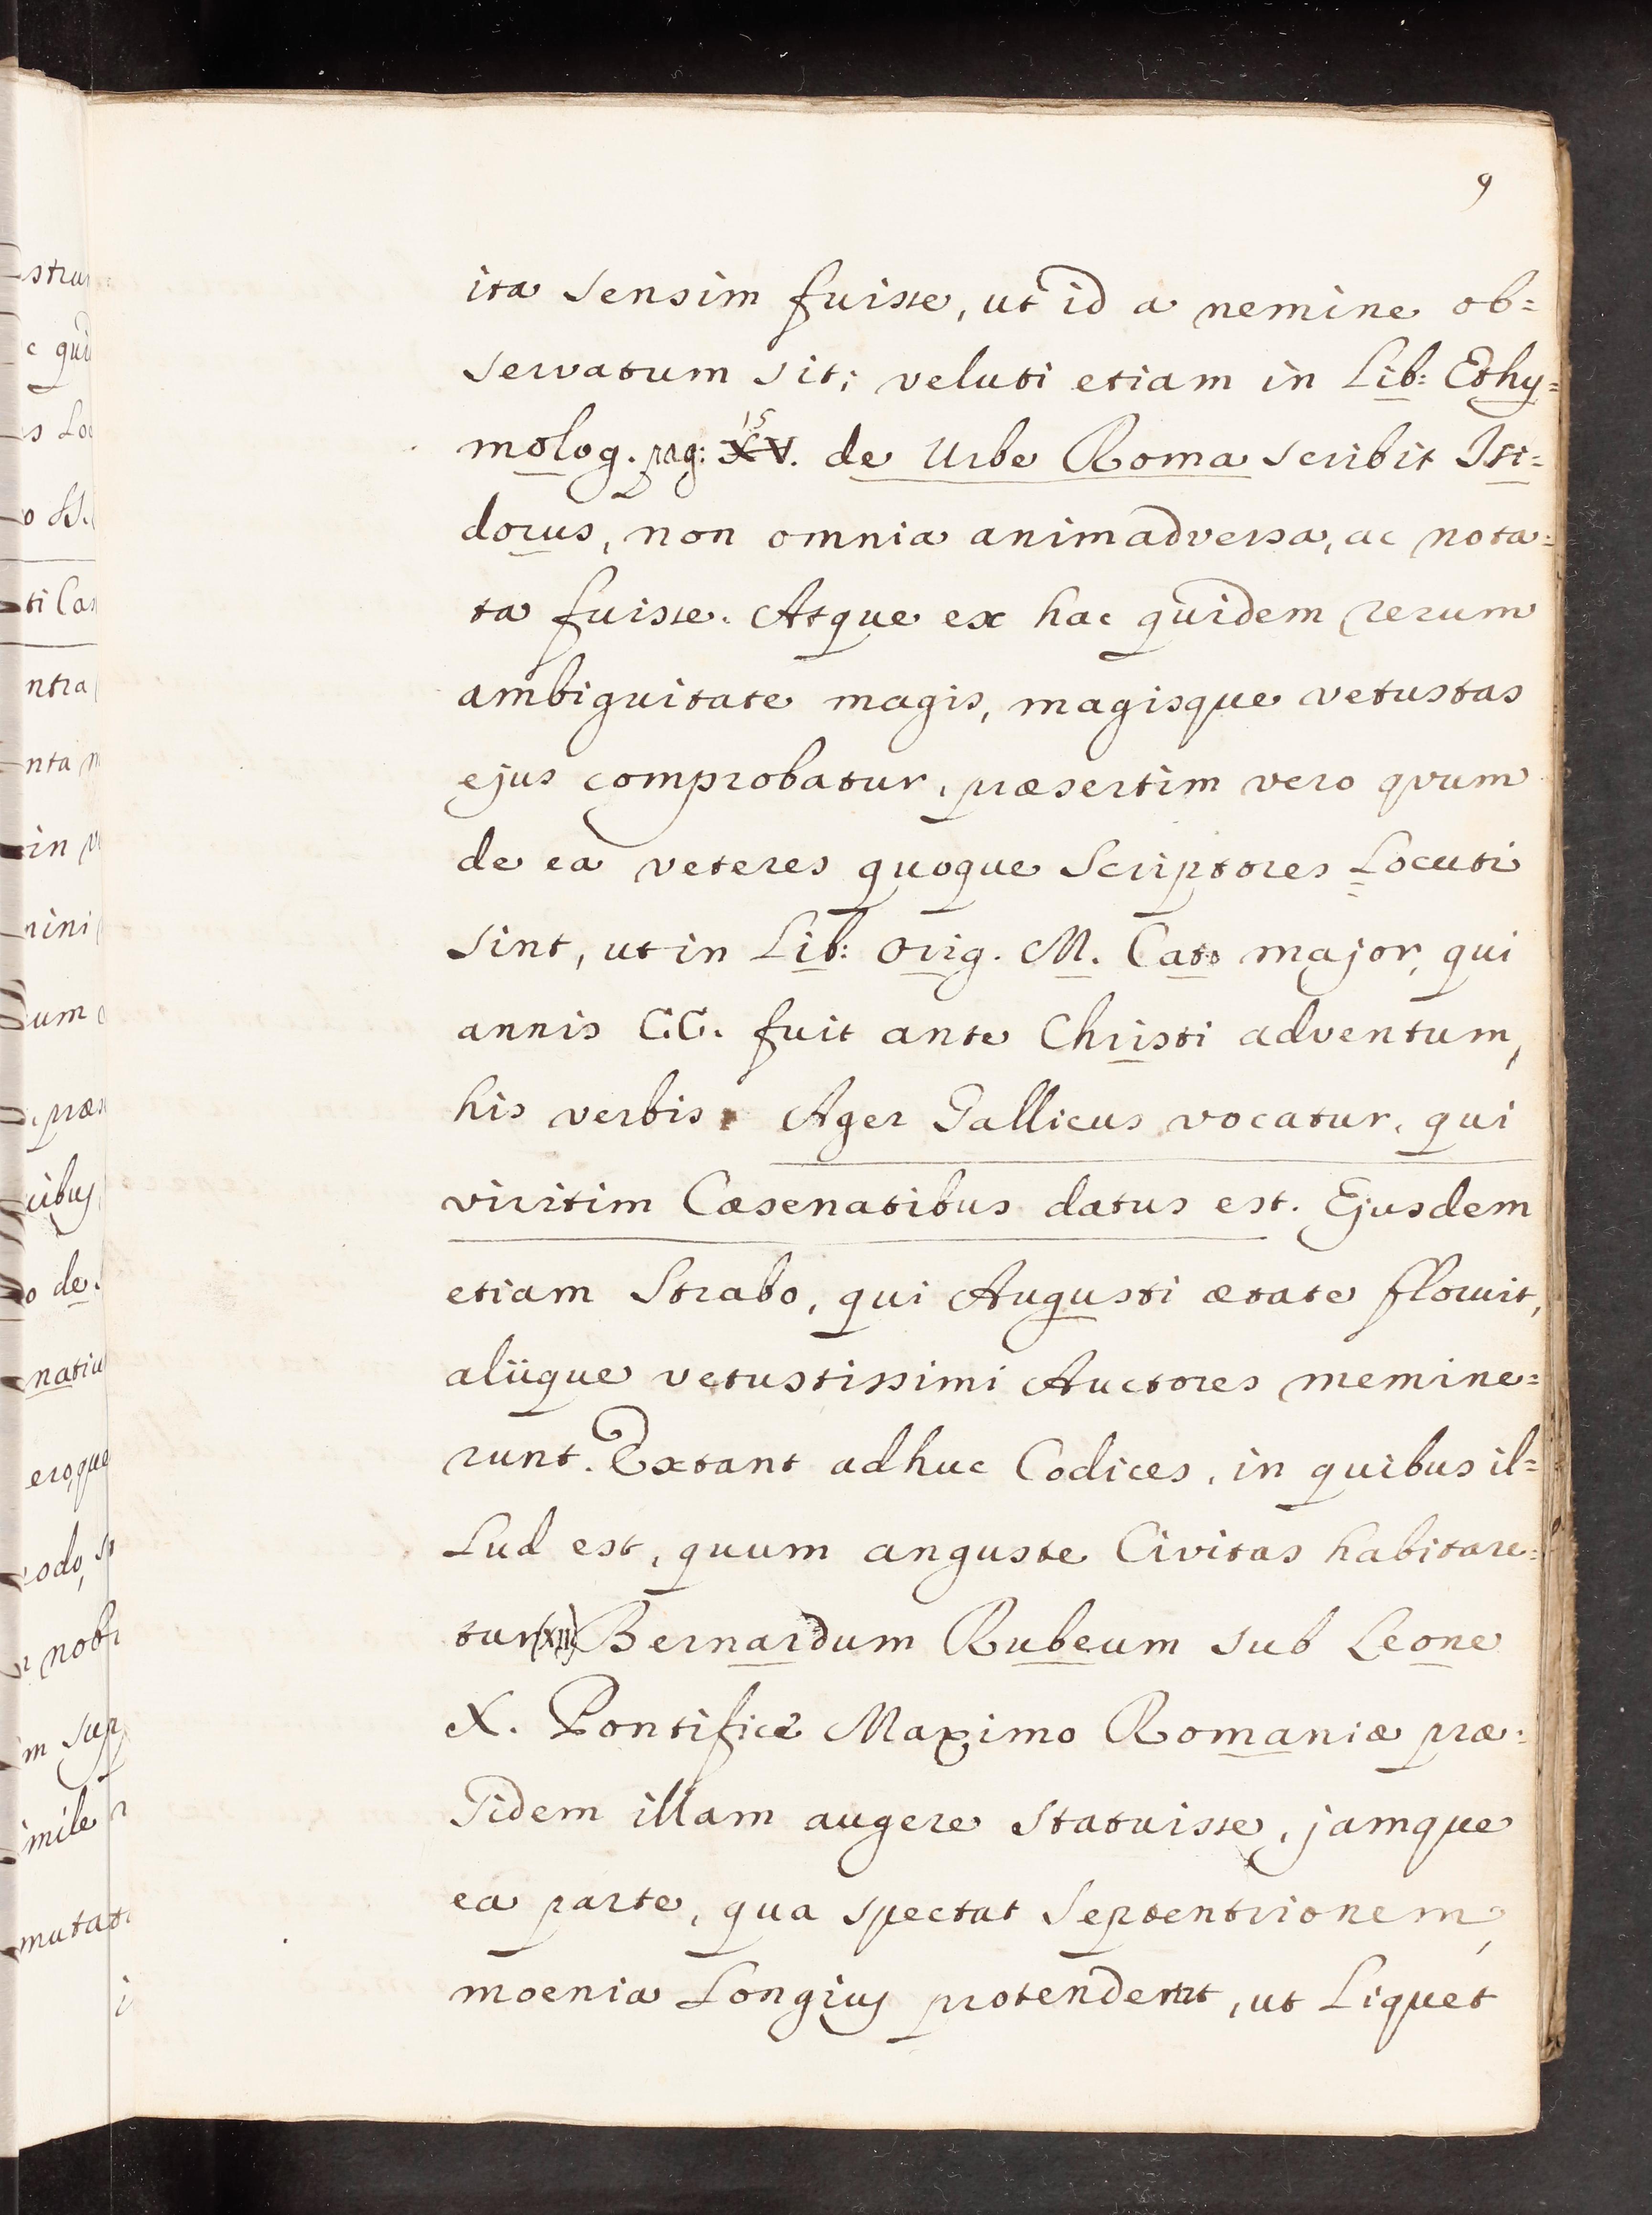 9
ita sensim fuisse, ut id a nemine ob=
servatum sit; veluti etiam in Lib: Ethy=
molog. pag: 15 XV. de Urbe Roma scribit Isi=
dorus, non omnia animadversa, ac nota=
ta fuisse. Atque ex hac quidem rerum
ambiguitate magis, magisque vetustas
ejus comprobatur, præsertim vero qvum
de ea veteres quoque Scriptores Locuti
sint, ut in Lib: Orig. M. Cato major, qui
annis CC. fuit ante Christi adventum,
his verbis: Ager Gallicus vocatur, qui
viritim Cæsenatibus datus est. Ejusdem
etiam Strabo, qui Augusti ætate floruit,
aliique vetustissimi Auctores memine=
runt. Extant adhuc Codices, in quibus il=
Lud est, quum anguste Civitas habitare=
tur (XII) Bernardum Rubeum sub Leone
X. Pontifice Maximo Romaniæ præ=
sidem illam augere statuisse, jamque
ea parte, qua spectat Septentrionem,
moenia Longius protenderat, ut Liquet